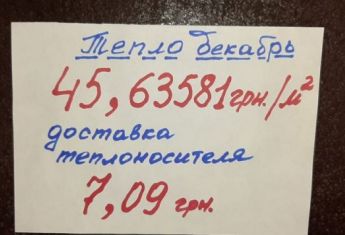 Тепло декабрь
45,63581 грн./м²
доставка
теплоносителя
7,09 грн.